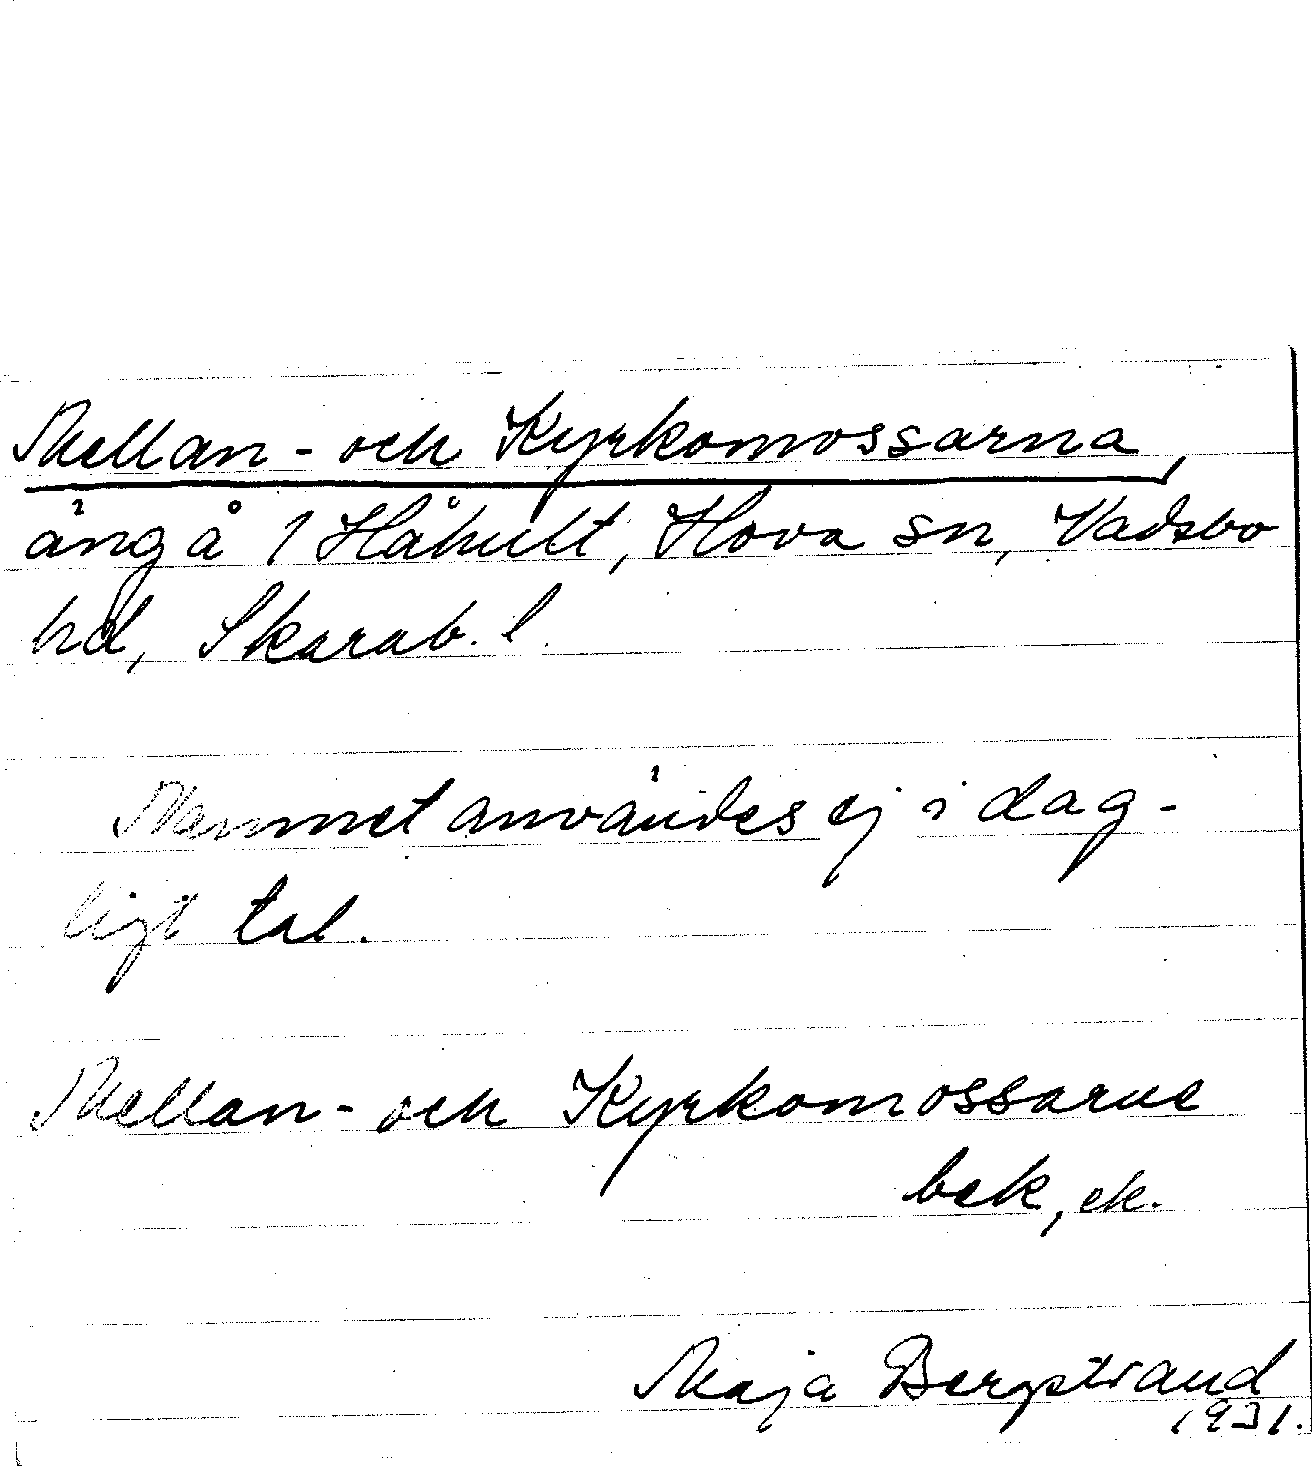 Mellan- och Kyrkomossarna,
äng å 1 Håhult, Hova sn, Vadsbo
hd, Skarab. l.
Namnet användes ej i dag-
ligt tal.
Mellan- och Kyrkomossarne
bek, ek.
Maja Bergstrand
1931.